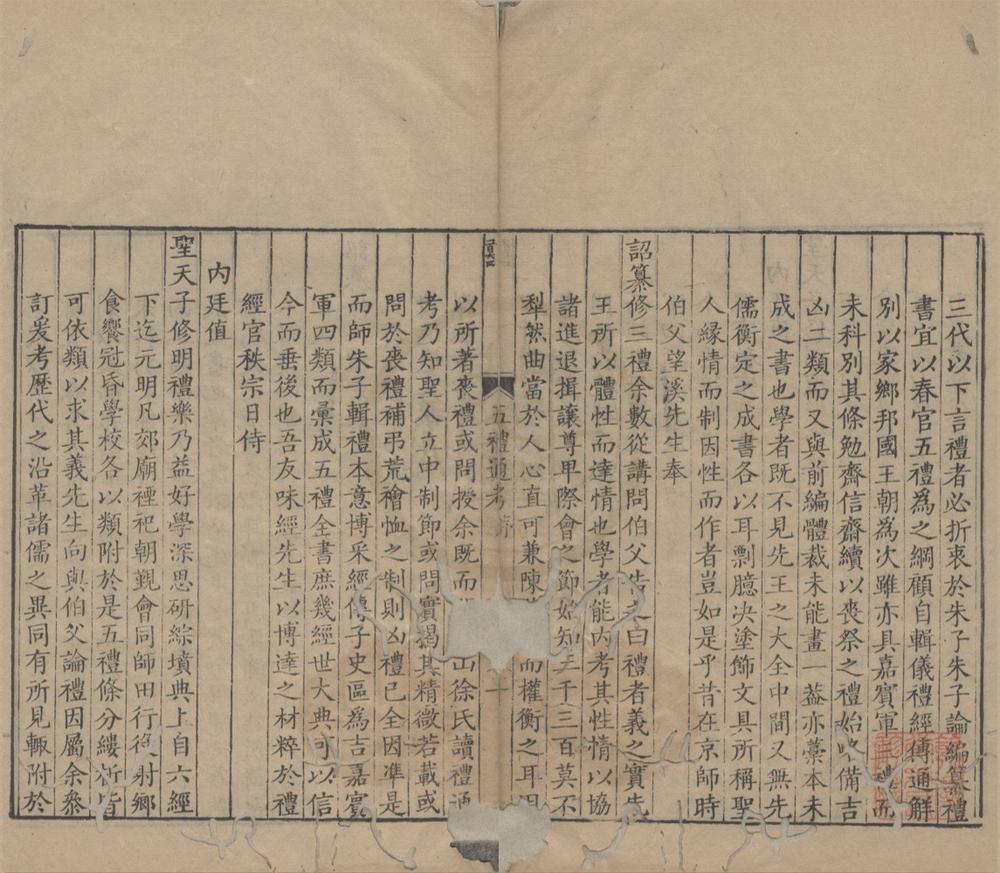 三代以下言禮者必折衷於朱子朱子論編纂禮
書宜以春官五禮爲之綱顧自輯儀禮經傳通解
別以家鄉邦國王朝為次雖亦具嘉賓軍禮而
未科別其條勉齋信齋續以喪祭之禮始略備吉
凶二類而又與前編體裁未能畫一葢亦藁本未
成之書也學者既不見先王之大全中間又無先
儒衡定之成書各以耳剽臆决塗飾文具所稱聖
人緣情而制因性而作者豈如是乎昔在京師時
伯父望溪先生奉
詔纂修三禮余數從講問伯父告之曰禮者義之實先
王所以體性而達情也學者能內考其性情以協
諸進退揖讓尊卑際會之節始知三千三百莫不
犁然曲當於人心直可兼陳而權衡之耳因
五禮通考
以所著喪禮或問授余既而山徐氏讀禮通
考乃知聖人立中制節或問實揭其精微若載或
問於喪禮補弔荒禬恤之制則凶禮已全因準是
而師朱子輯禮本意博采經傳子史區爲吉嘉賓
軍四類而彙成五禮全書庶幾經世大典可以信
今而垂後也吾友味經先生以博達之材粹於禮
經官秩宗日侍
內廷值
聖天子修明禮樂乃益好學深思研綜墳典上自六經
下迄元明凡郊廟禋祀朝覲會同師田行役射鄉
食饗冠昏學校各以類附於是五禮條分縷析皆
可依類以求其義先生向與伯父論禮因屬余叅
訂爰考歷代之沿革諸儒之異同有所見輙附於